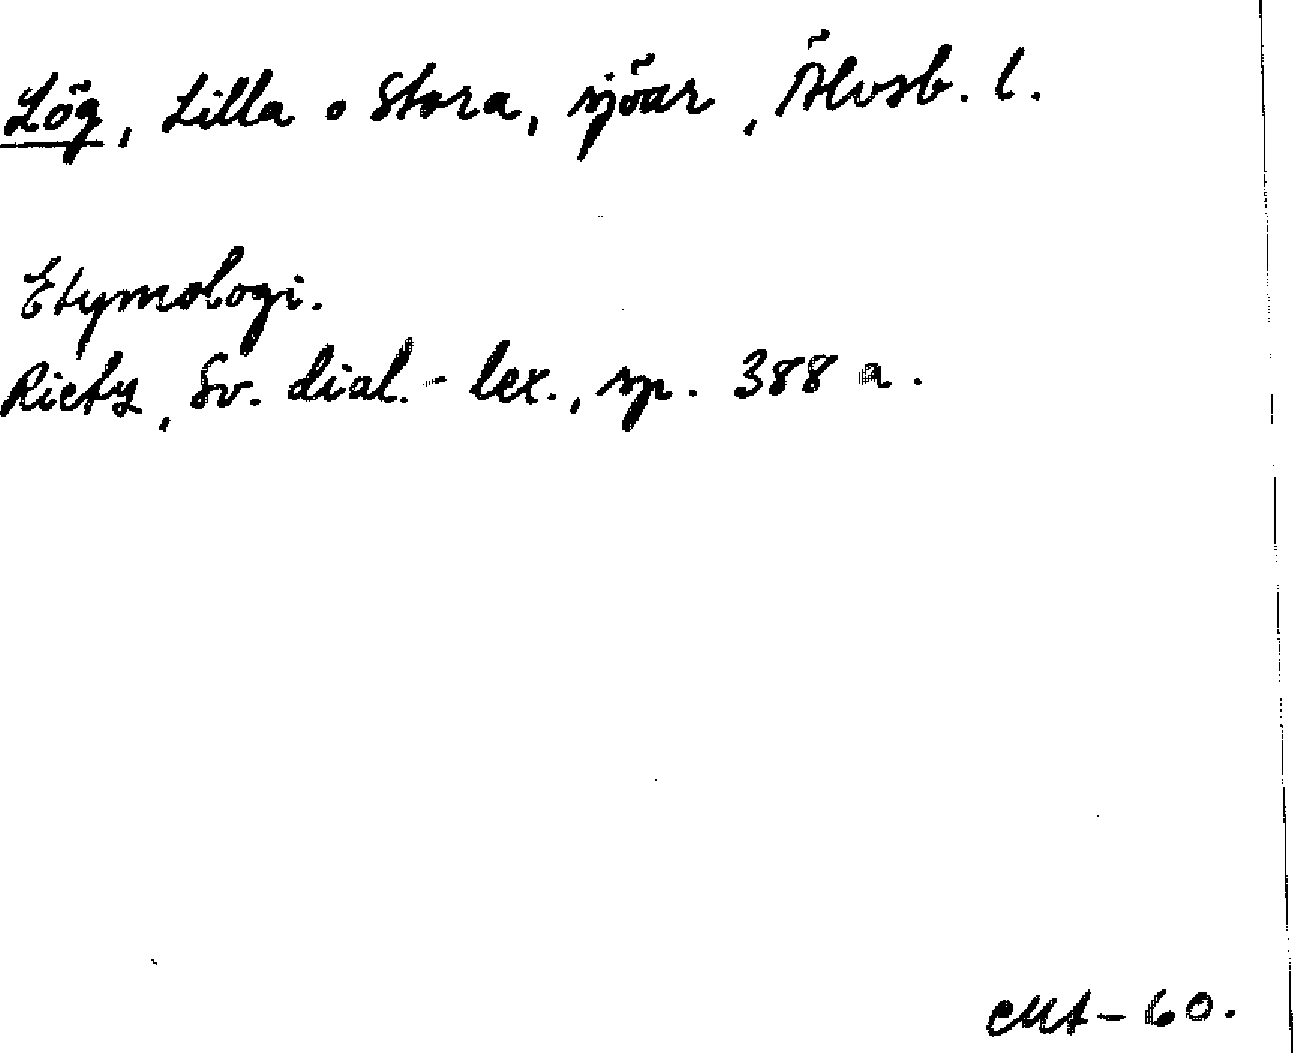 Lög, Lilla o Stora, sjöar, Älvsb. l.
Etymologi.
Rietz, Sv. dial.-lex., sp. 388 a.
CMt-60.